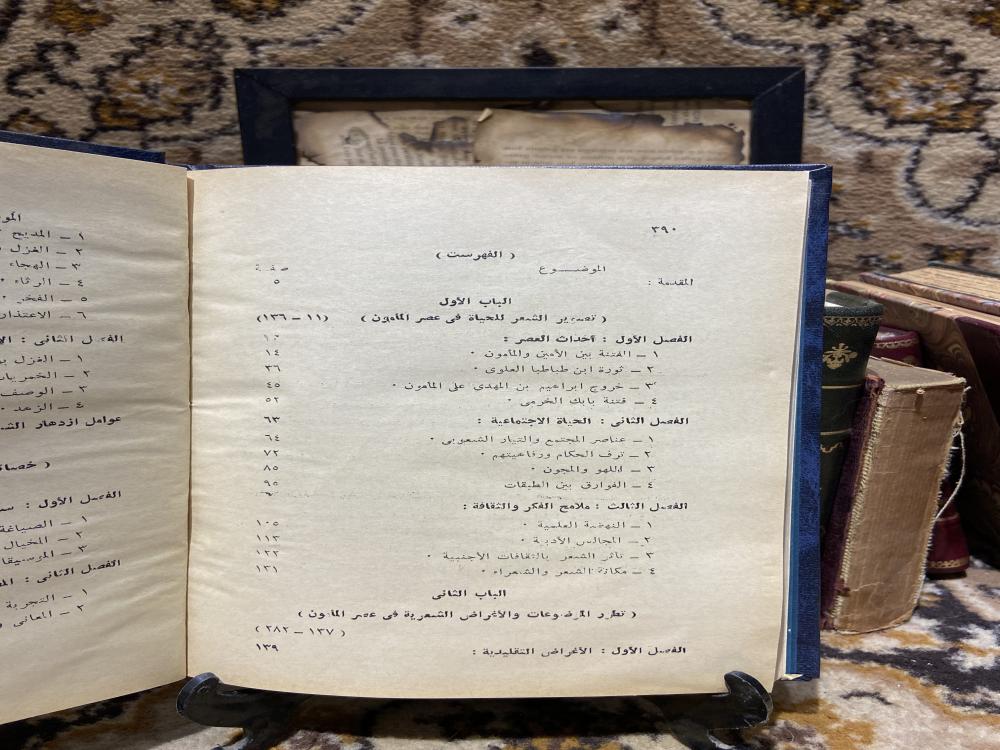 ٣٩٠
( الفهرست )
الموضـــوع صفحة
المقدمة : ٥
الباب الأول
( تصوير الشعر للحياة فى عصر المأمون ) (١١ – ١٣٦)
الفصل الأول : أحداث العصر :
١ – الفتنة بين الأمين والمأمون ٠ ١٤
٢ – ثورة ابن طباطبا العلوى ٠ ٣٦
٣ – خروج ابراهيم بن المهدي على المأمون ٠ ٤٥
٤ – فتنة بابك الخرمى ٠ ٥٢
الفصل الثانى : الحياة الاجتماعية : ٦٣
١ – عناصر المجتمع والتيار الشعوبى ٠ ٦٤
٢ – ترف الحكام ورفاهيتهم ٠ ٧٢
٣ – اللهو والمجون ٠ ٨٥
٤ – الفوارق بين الطبقات ٩٥
الفصل الثالث : ملامح الفكر والثقافة :
١ – النهضة العلمية ٠ ١٠٥
٢ – المجالس الأدبية ٠ ١١٣
٣ – تأثر الشعر بالثقافات الأجنبية ٠ ١٢٢
٤ – مكانة الشعر والشعراء ٠ ١٣١
الباب الثانى
( تطور الموضوعات والأغراض الشعرية فى عصر المأمون )
( ١٣٧ – ٢٨٢ )
الفصل الأول : الأغراض التقليدية : ١٣٩
١ – المديح
٢ – الغزل
٣ – الهجاء
٤ – الرثاء ٠
٥ – الفخر ٠
٦ – الاعتذار
الفصل الثانى :
١ – الغزل
٢ – الخمريات
٣ – الوصف
٤ – الزهد ٠
عوامل ازدهار
الفصل الأول :
١ – الصياغة
٢ – الخيال
٣ – الموسيقا
الفصل الثانى :
١ – التجربة
٢ – المعانى